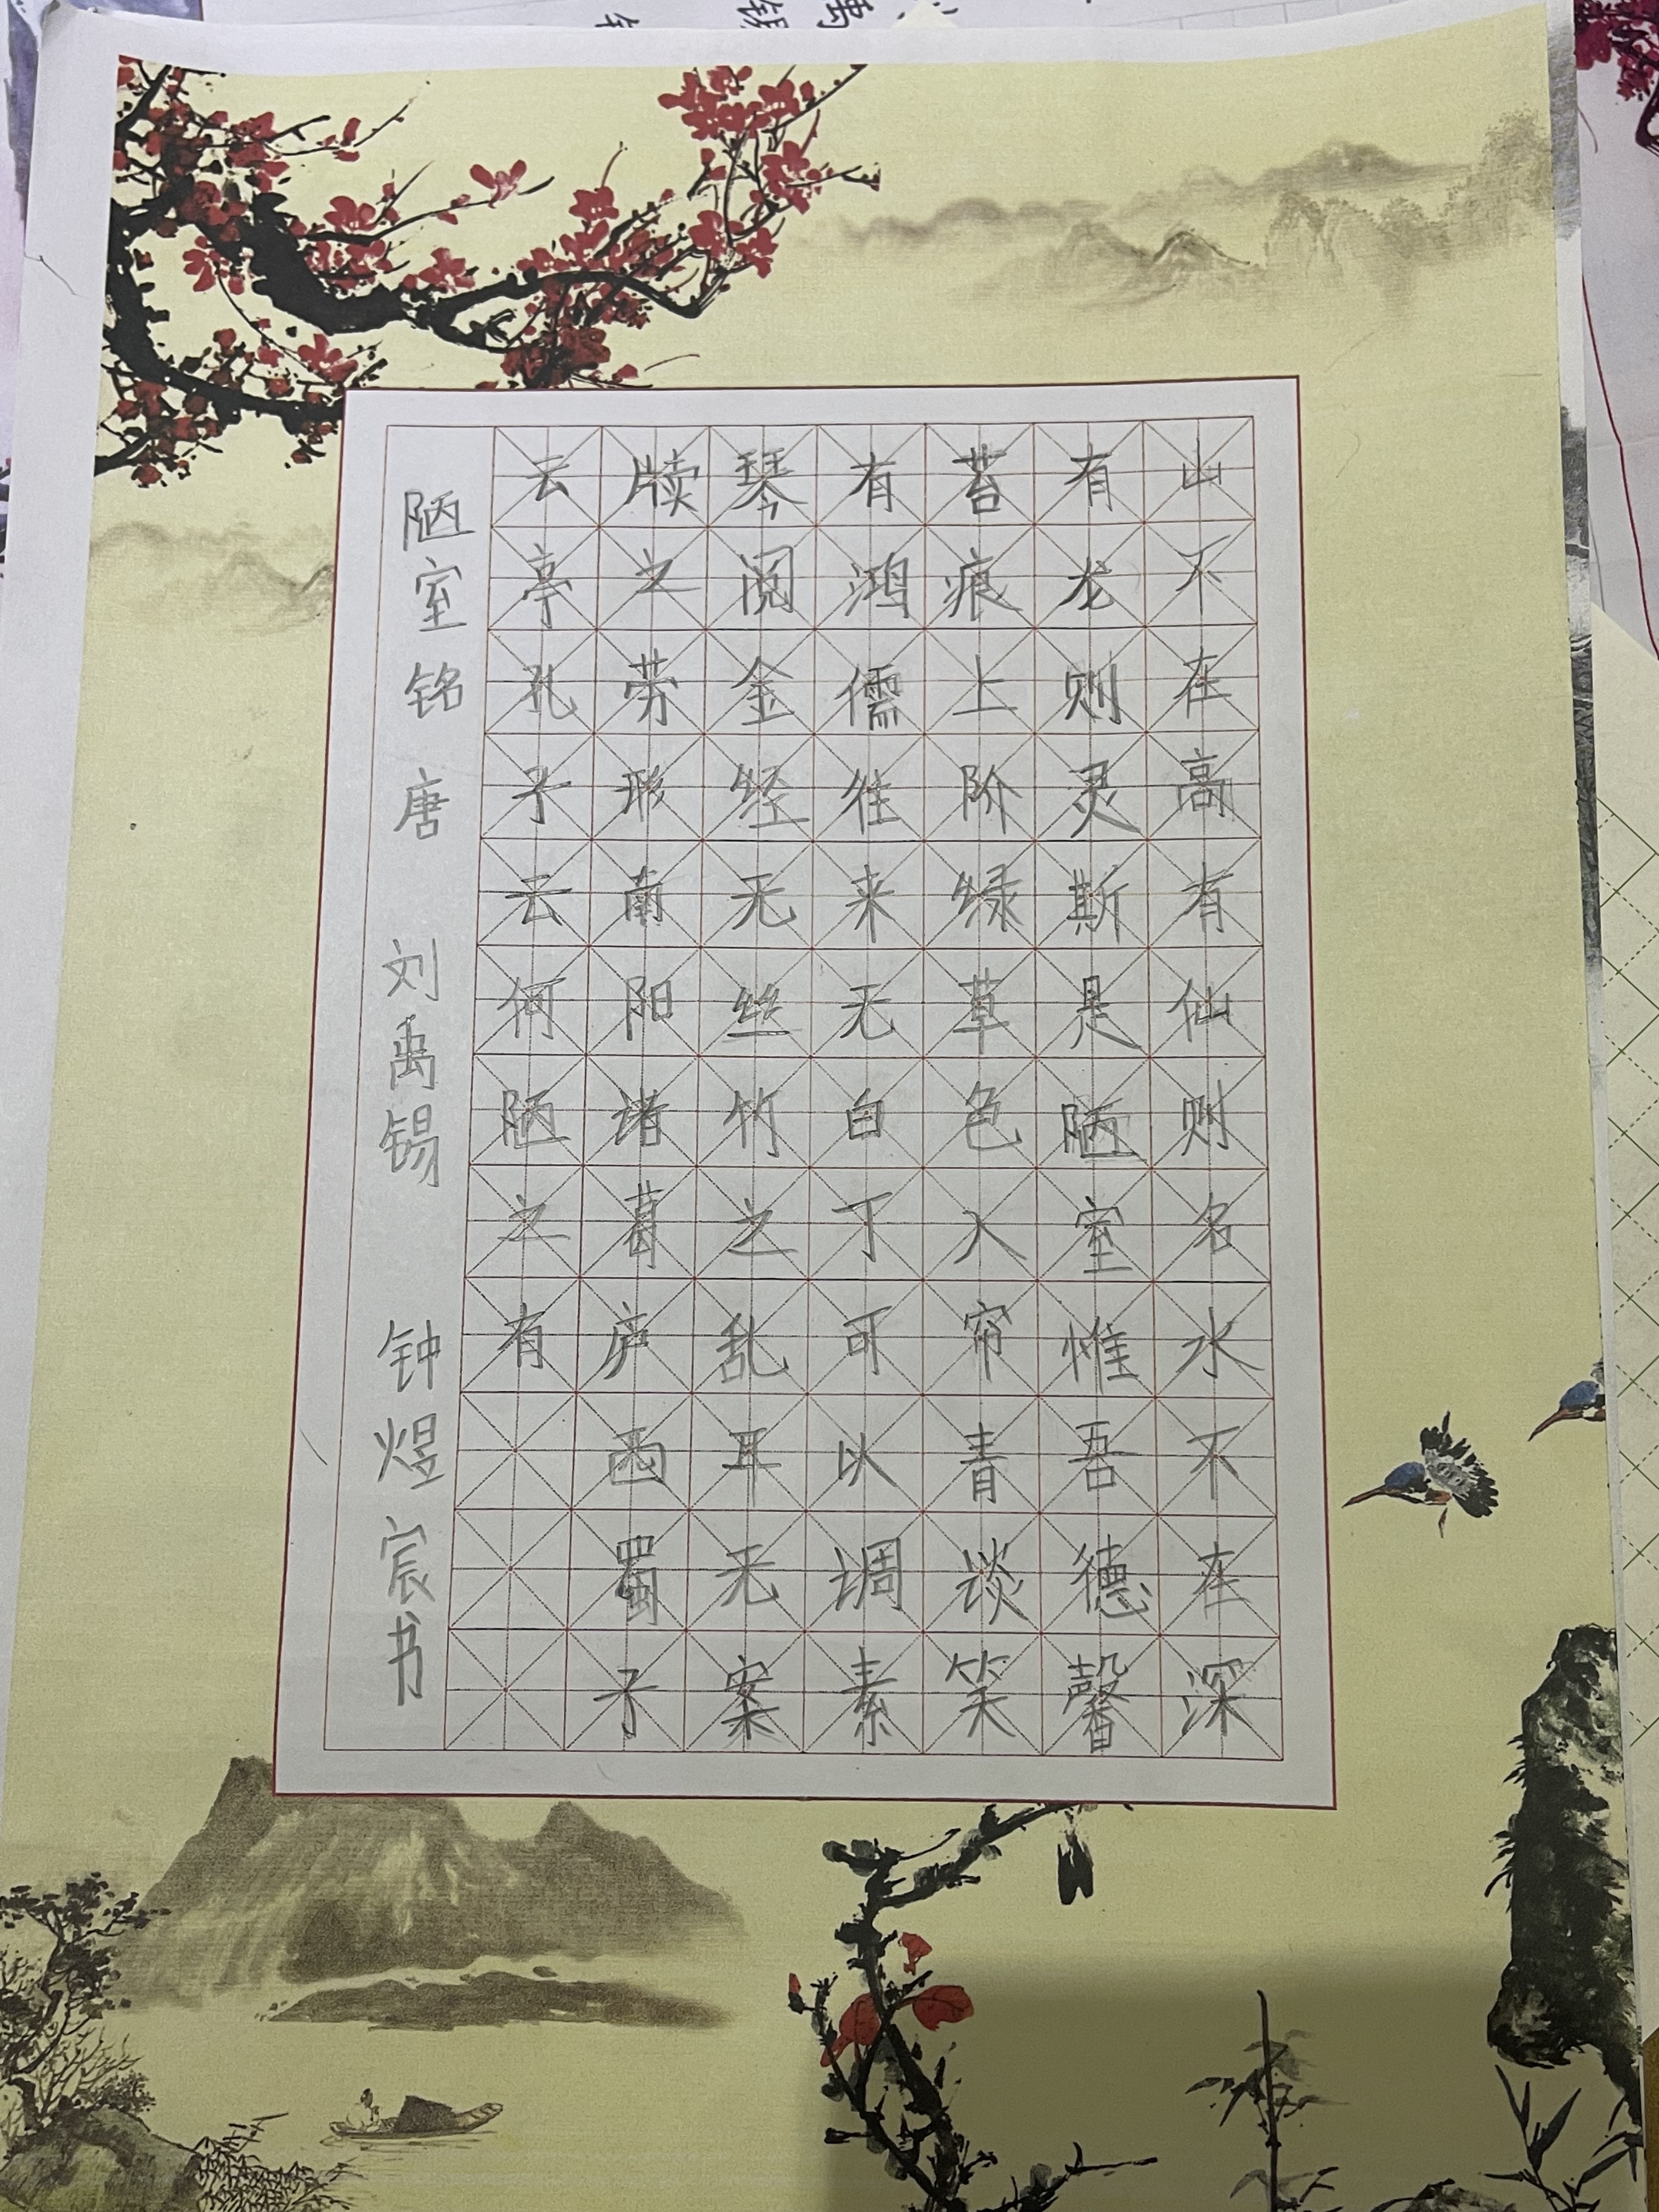 山不在高有仙则名水不在深
有龙则灵斯是陋室惟吾德馨
苔痕上阶绿草色入帘青谈笑
有鸿儒往来无白丁可以调素
琴阅金经无丝竹之乱耳无案
牍之劳形南阳诸葛庐西蜀子
云亭孔子云何陋之有
陋室铭 唐 刘禹锡 钟煜宸书